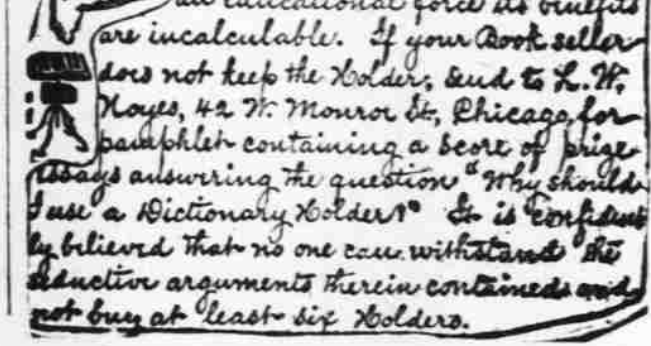 an educational force its benefits
are incalculable. If your Book seller
does not keep the Holder, send to L. W.
Noyes, 42 W. Monroe St, Chicago, for
pamphlet containing a score of prize
essays answering the question "Why should
I use a Dictionary Holder?" It is confident
ly believed that no one can withstand the
seductive arguments therein contained and
not buy at least six Holders.